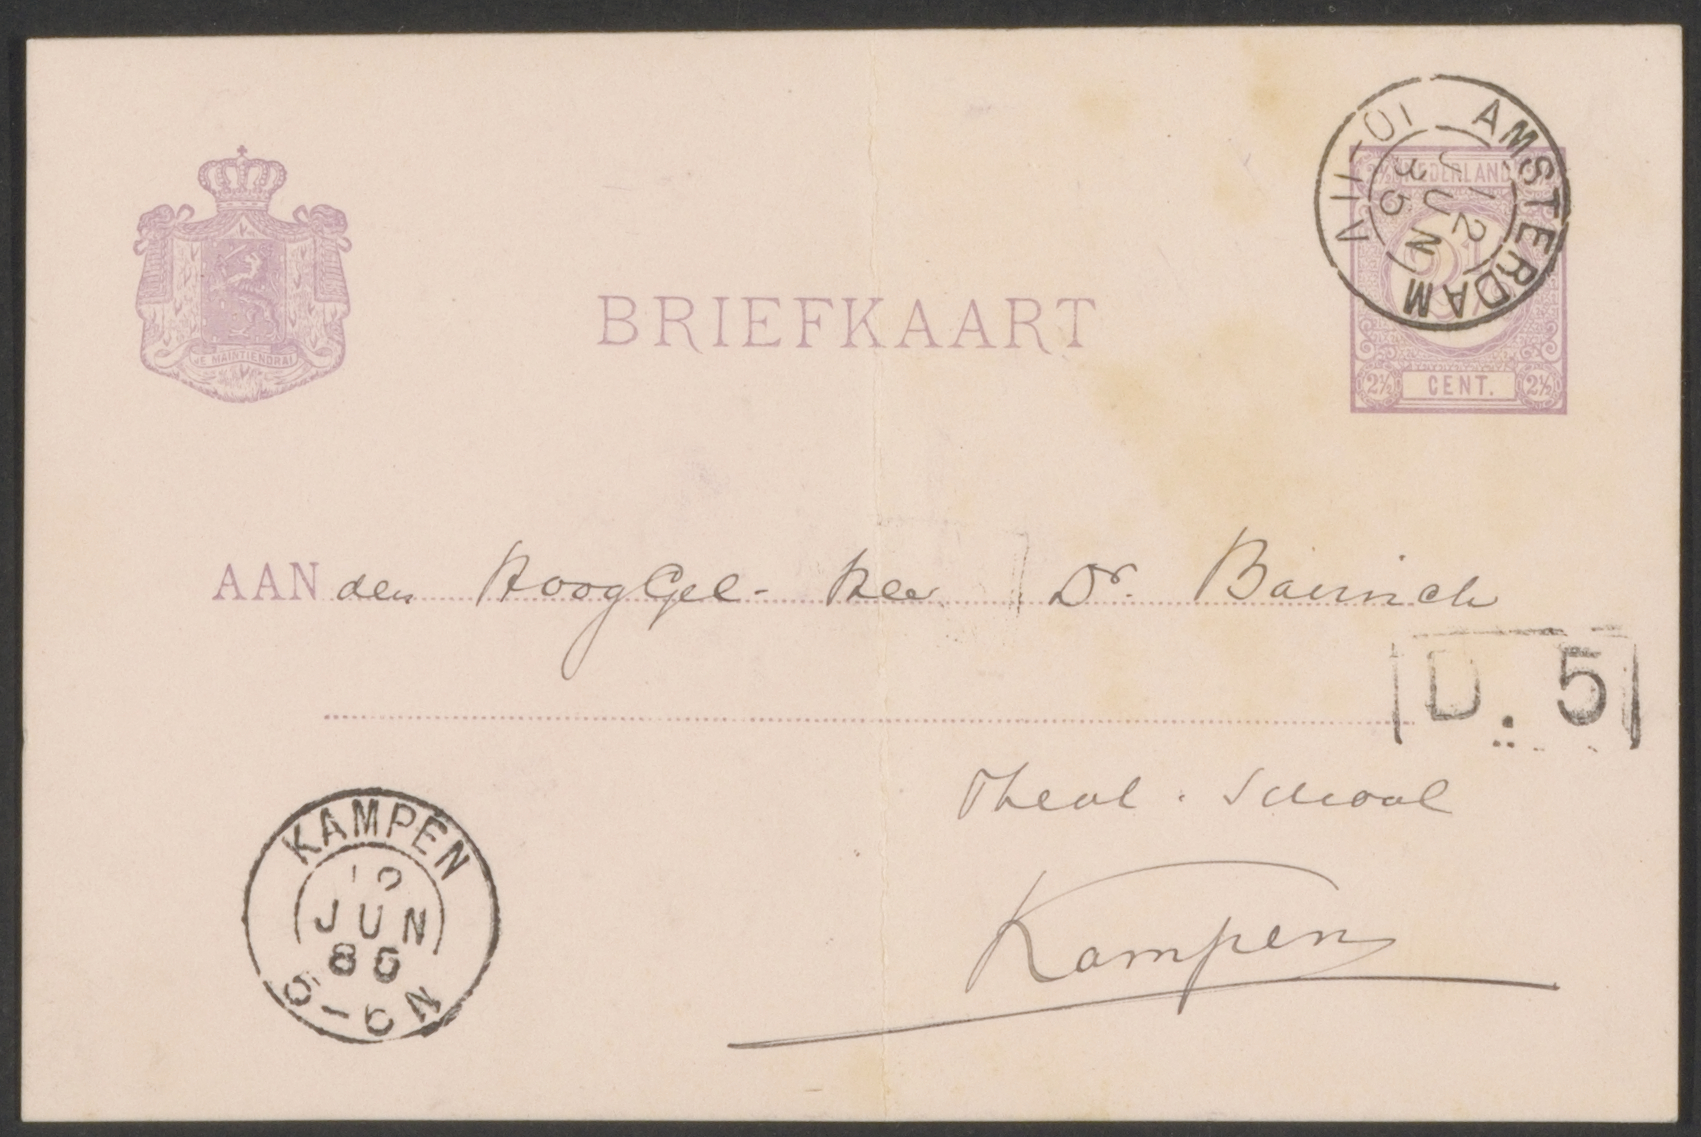 JE MAINTIENDRAI
BRIEFKAART
NEDERLAND
2½ CENT. 2½
AMSTERDAM
12
JUN
10-11N
AAN den HoogGel- Heer Dr. Bavinck
D. 5
Theol. School
Kampen
KAMPEN
12
JUN
86
5-6N